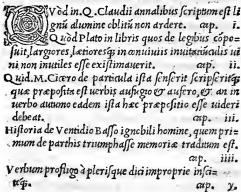 QVod in. Q. Claudii annalibus scriptum est li
gnū alumine oblitū non ardere. cap. i.
Quòd Plato in libris quos de legibus cōpo-
suit, largiores, lætioresq; in cōuiuiis inuitatiūculas ui
ni non inutiles esse existimauerit. cap.
Quid. M. Cicero de particula ista senserit scripseritq;
quæ præposita est uerbis aufugio & aufero, & an in
uerbo autumo eadem ista hæc præpositio esse uideri
debeat. cap. iii.
Historia de Ventidio Basso ignobili homine, quem pri-
mum de parthis triumphasse memoriæ traditum est.
cap. iiii.
Verbum profligo à plerisque dici improprie insci-
teq;. cap. v.